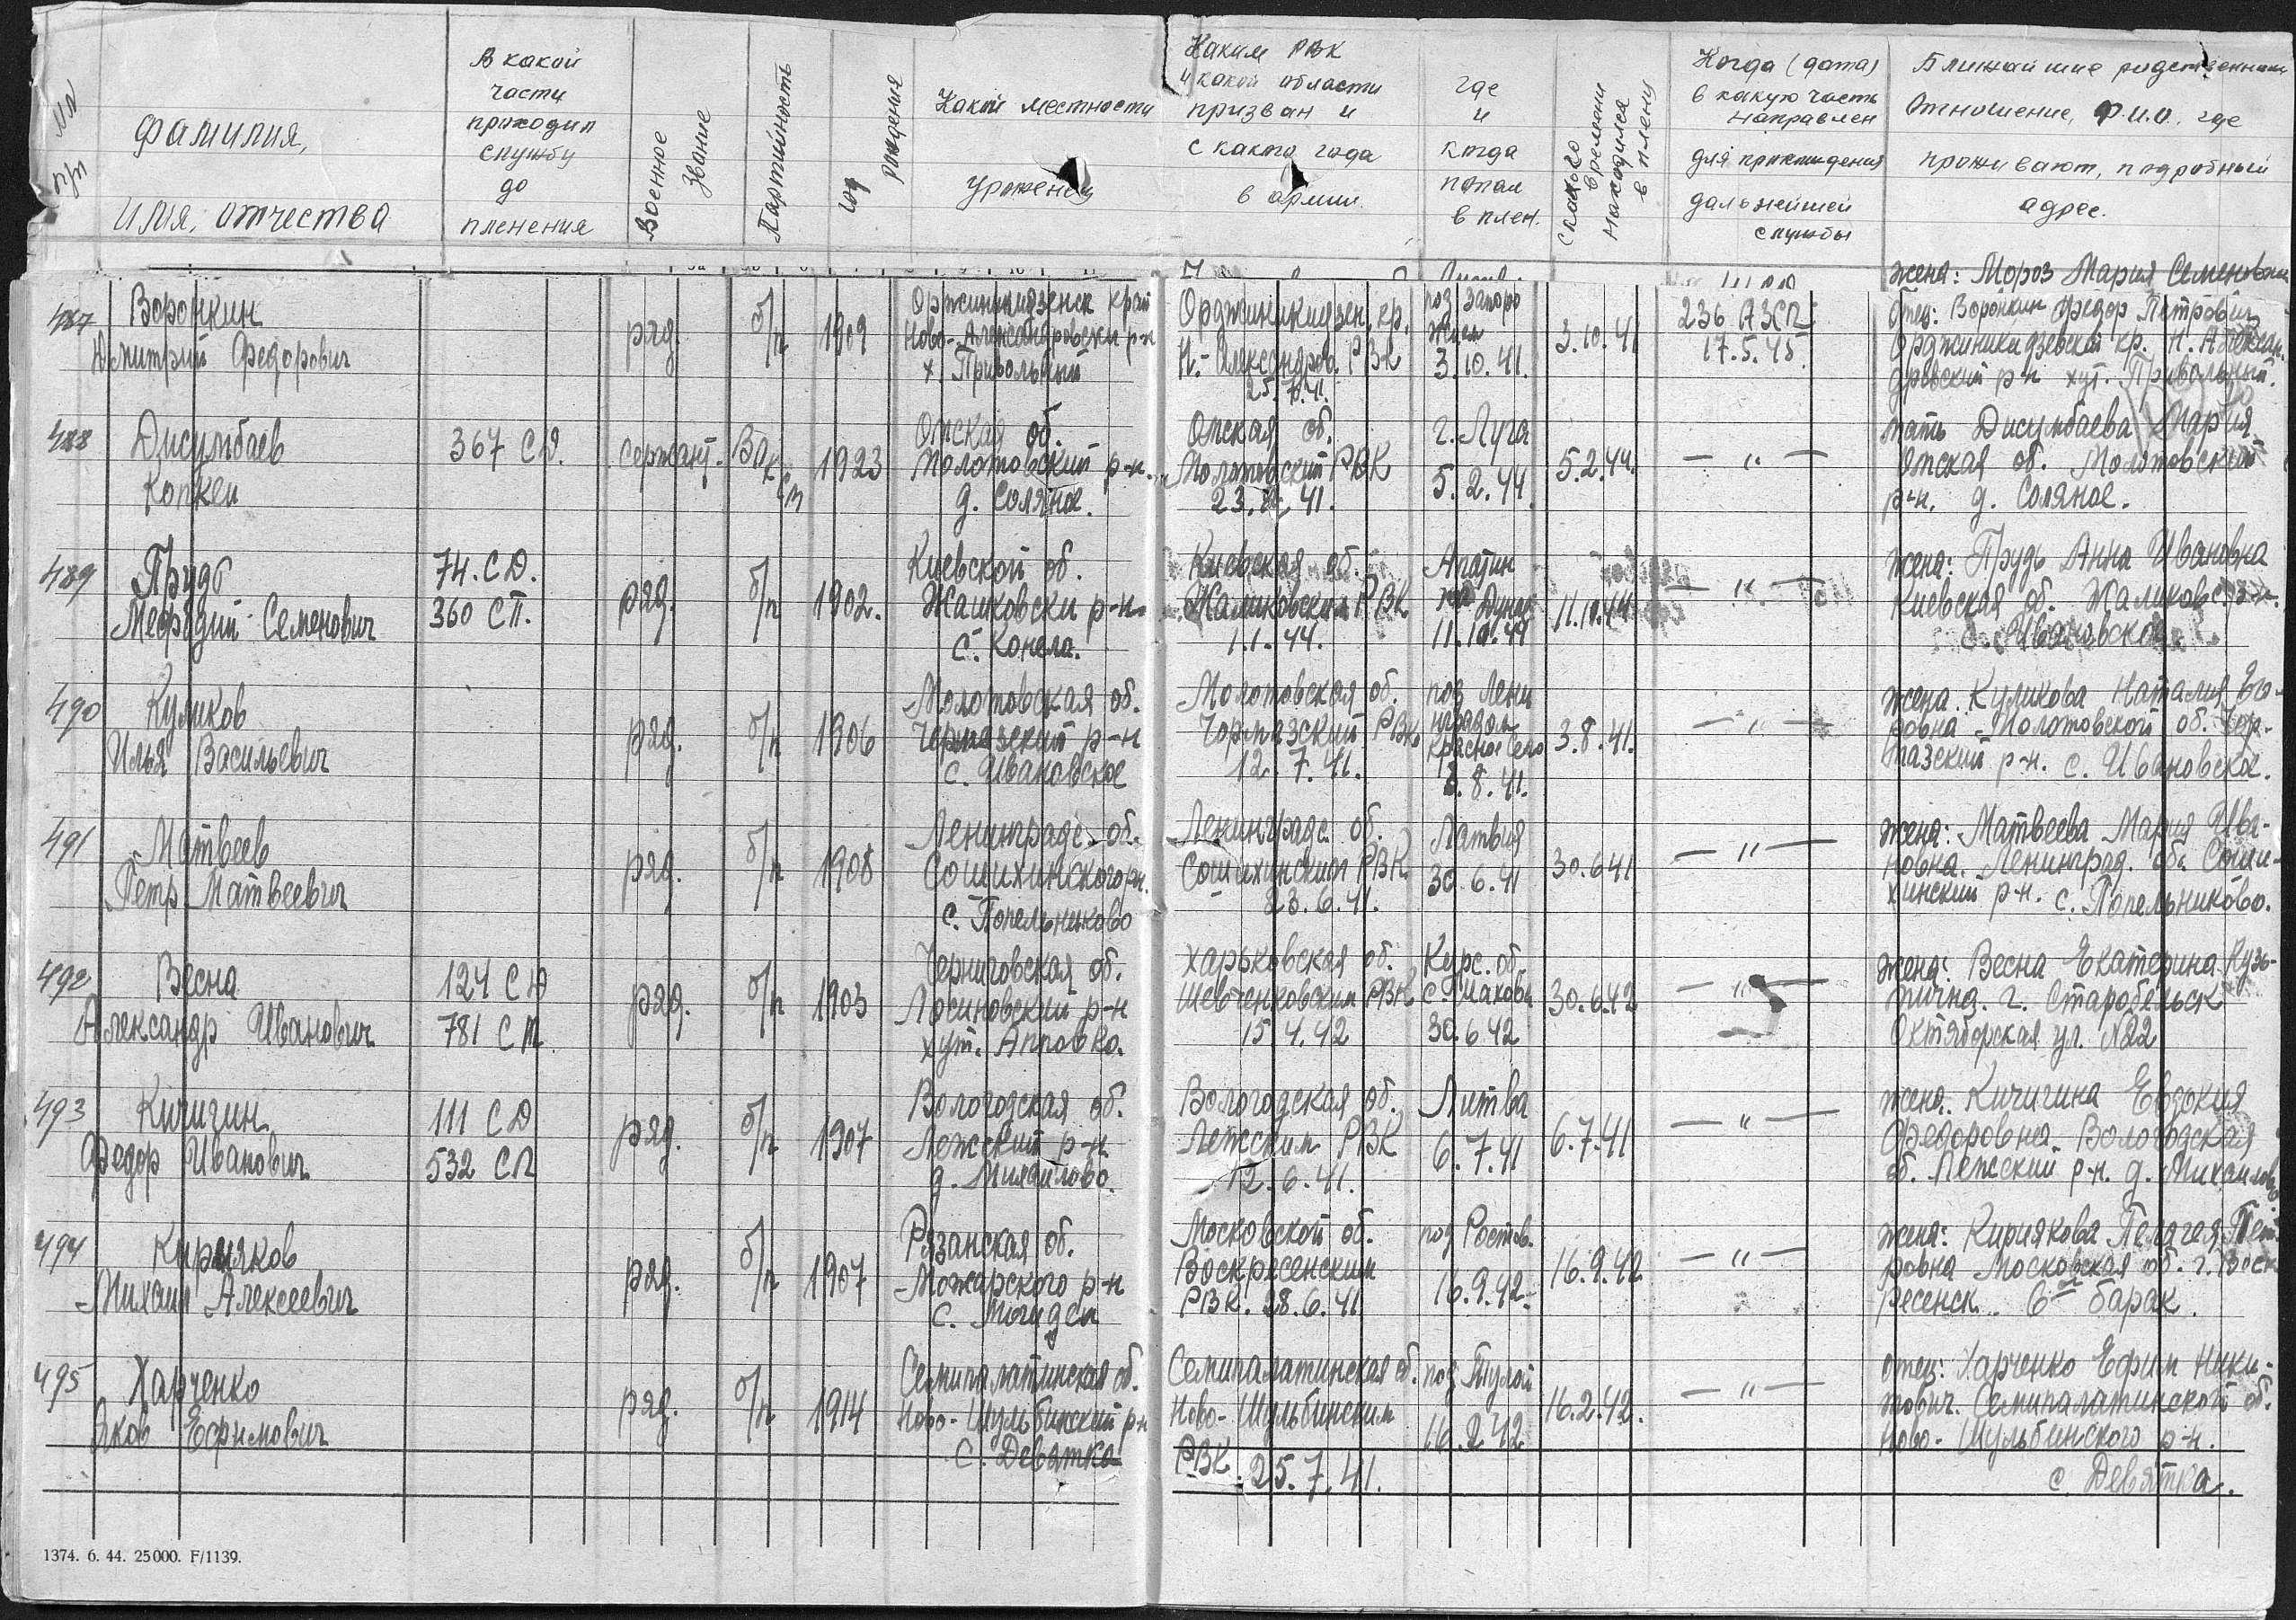 №№
п/п
Фамилия,
имя, отчества
В какой
части
проходил
службу
до
пленения
Военное
звание
Партийность
год
рождения
Какой местности
уроженец
Каким РВК
и какой области
призван и
с какго года
в армии.
где
и
когда
попал
в плен.
с какого
времени
находился
в плену
Когда (дата)
в какую часть
направлен
для прохождения
дальнейшей
службы
Ближайшие родственники
Отношение, Ф.И.О. где
проживают, подробный
адрес.
жена: Мороз Мария Семеновна
487
Воронкин
Дмитрий Федорович
ряд.
б/п
1909
Орджиникидзенск край
Ново-Александровски р-н
х. Привольный
Орджиникидзен. кр.
Н.-Александров. РВК
25.7.41.
под Запоро
жием
3.10.41.
3.10.41
236 АЗСП
17.5.45
Отец: Воронкин Федор Петрович
Орджиникидзевский кр. Н. Алексан.
дровский р-н хут. Привольный.
488
Дисумбаев
Копжеи
367 СД.
Сержант.
1923
Омская об.
Молотовский р-н.
д. Соляное.
Омская об.
Молотовский РВК
41.
г. Луга
5.2.44
5.2.44.
— " —
мать Дисумбаева Мария
Омская об. Молотовский
р-н. д. Соляное.
489
Прудь
Мефодий Семенович
74. СД.
360 СП.
ряд.
б/п
1902.
Киевской об.
Жашковски р-н
с. Конела.
Киевская об.
РВК
1.1.44.
Апатин
на Дунае
11.10.44
11.10.44
— " —
жена: Прудь Анна Ивановна
Киевская об.
490
Куликов
Илья Васильевич
ряд.
б/п
1906
Молотовская об.
Чермазский р-н
с. Ивановское
Молотовская об.
Чормазский РВК
12.7.41.
под Лени
нградом
Красное село
8.41.
3.8.41.
— " —
жена. Куликова Наталия Его-
ровна Молотовской об. Чер-
мазский р-н. с. Ивановское.
491
Матвеев
Петр Матвеевич
ряд.
б/п
1908
Ленинградс. об.
Сошихинского р-н.
с. Попельниково
Ленинградс. об.
Сошихинским РВК
23.6.41.
Латвия
30.6.41
30.6 41
— " —
жена: Матвеева Мария Ива-
новна. Ленинград. об. Соши-
хинский р-н. с. Попельниково.
492
Весна
Александр Иванович
124 СД
781 СП.
ряд.
б/п
1903
Черниговская об.
Лосиновский р-н
хут.
Харьковская об.
Шевченковским РВК
15 4.42
Курс. об.
30.6 42
30.6.42
— " —
жена: Весна Екатерина Кузь-
мична. г. Старобельск
Октяборская ул. №22
493
Кичигин
Федор Иванович
111 СД
532 СП
ряд.
б/п
1907
Вологодская об.
Лежский р-н
д. Михайлово.
Вологодская об.
Лежским РВК
12.6.41.
Литва
6.7.41
6.7.41
— " —
жена. Кичигина Евдокия
Федоровна. Вологодская
об. Лежский р-н. д. Михайлово
494
Кирияков
Михаил Алексеевич
ряд.
б/п
1907
Рязанская об.
Можарского р-н
с.
Московской об.
Воскресенским
РВК. 28.6.41.
под Ростов.
16.9.42.
16.9.42
— " —
жена: Кириякова Пелагея Пет
ровна Московская об. г. Воск
ресенск. 6ой барак.
495
Харченко
Яков Ефимович
ряд.
б/п
1914
Семипалатинская об.
Ново-Шульбинский р-н
с. Девятка
Семипалатинская об.
Ново-Шульбинским
РВК. 25.7.41.
под Тулой
16.2 42
16.2.42.
— " —
отец: Харченко Ефим Ники-
тович. Семипалатинской об.
Ново-Шульбинского р-н.
с. Девятка.
1374. 6. 44. 25000. F/1139.